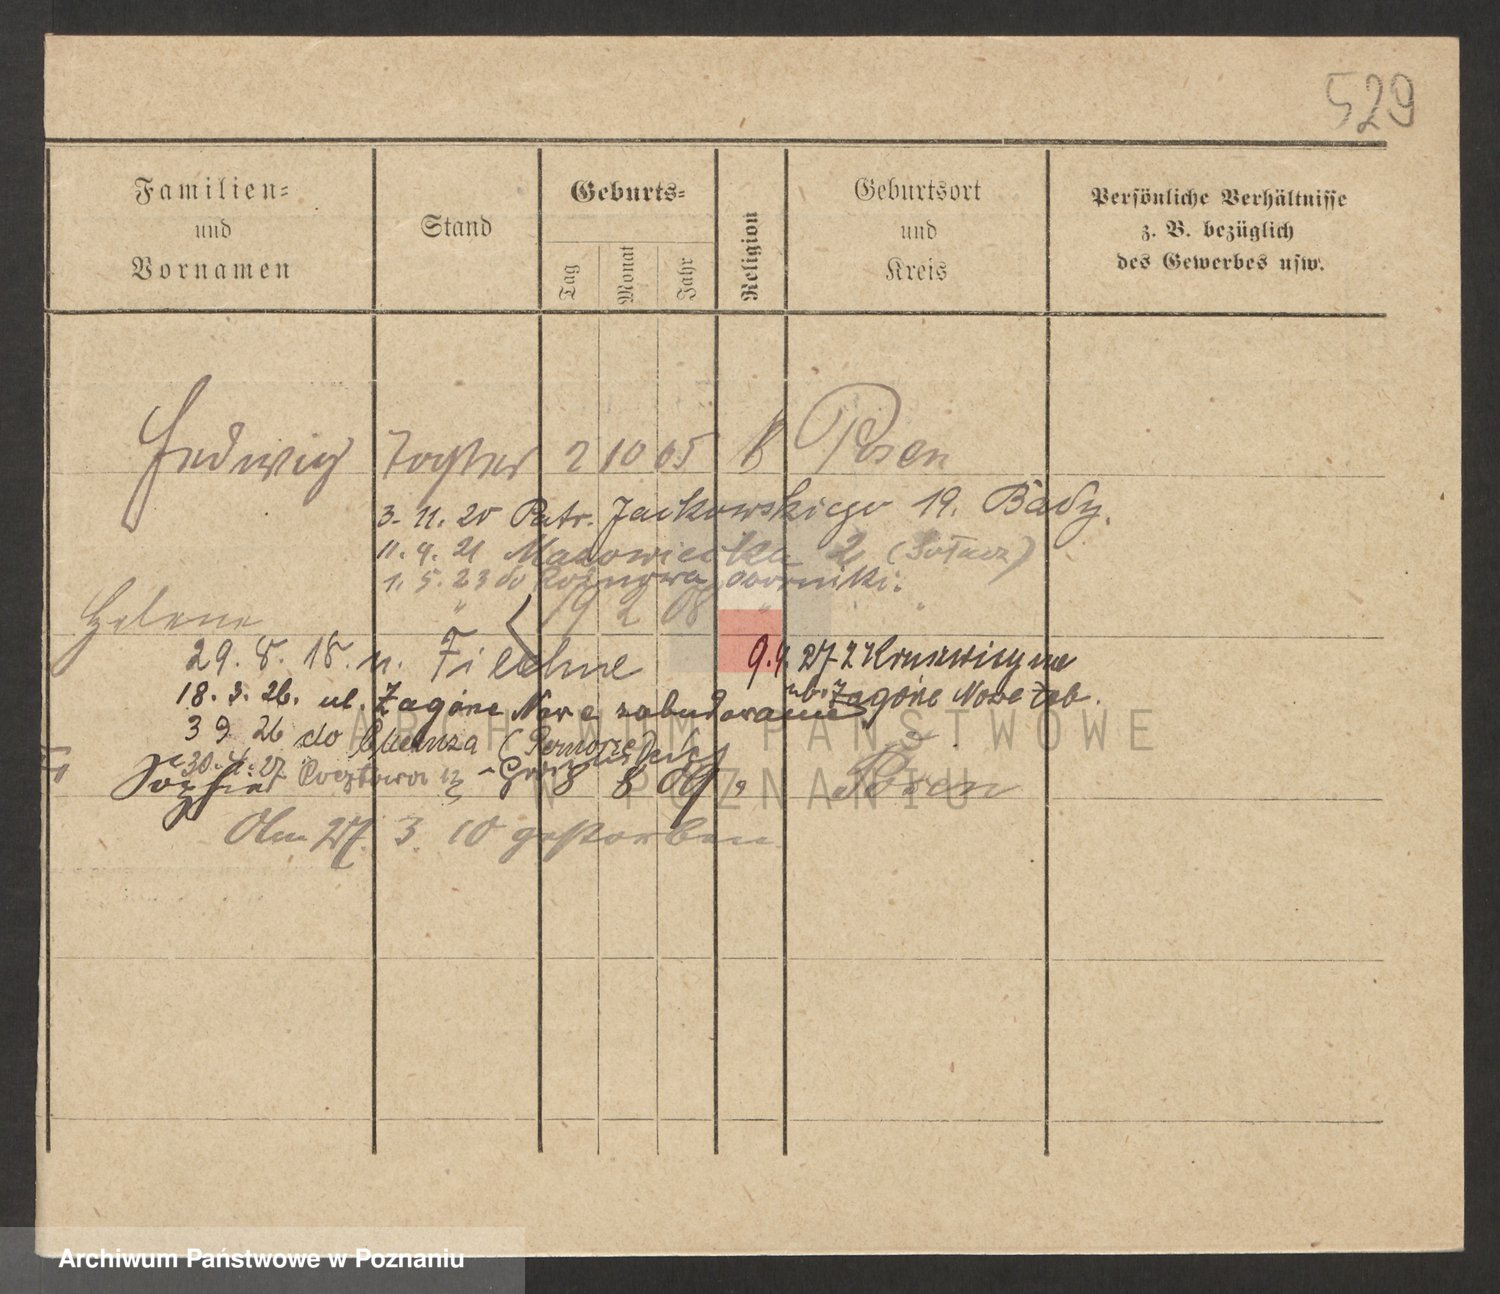 529
Familien-
und
Vornamen
Stand
Geburts-
Tag
Monat
Jahr
Religion
Geburtsort
und
Kreis
Persönliche Verhältnisse
z. B. bezüglich
des Gewerbes usw.
Hedwig Tochter 2 10 05 k Posen
3. 11. 20 Patr. Jackowskiego 19. Bady.
11. 4. 21 Mazowiecka 2 (Sołacz)
1. 5. 23 do Rożnowa oborniki.
Helene " 19 2 08 " "
29. 8. 18. n. Filehne 9.9. 27 z Kruszwicy na
18. 3. 26. ul. Zagórze Nowe zabudowanie ul. Zagórze Nowe zab.
3 9 26 do Chełmża (Pomorze)
30. 4. 27 Pocztowa
Sophie 8 8 09 " Posen
Am 27. 3. 10 gestorben
ARCHIWUM PAŃSTWOWE
W POZNANIU
Archiwum Państwowe w Poznaniu